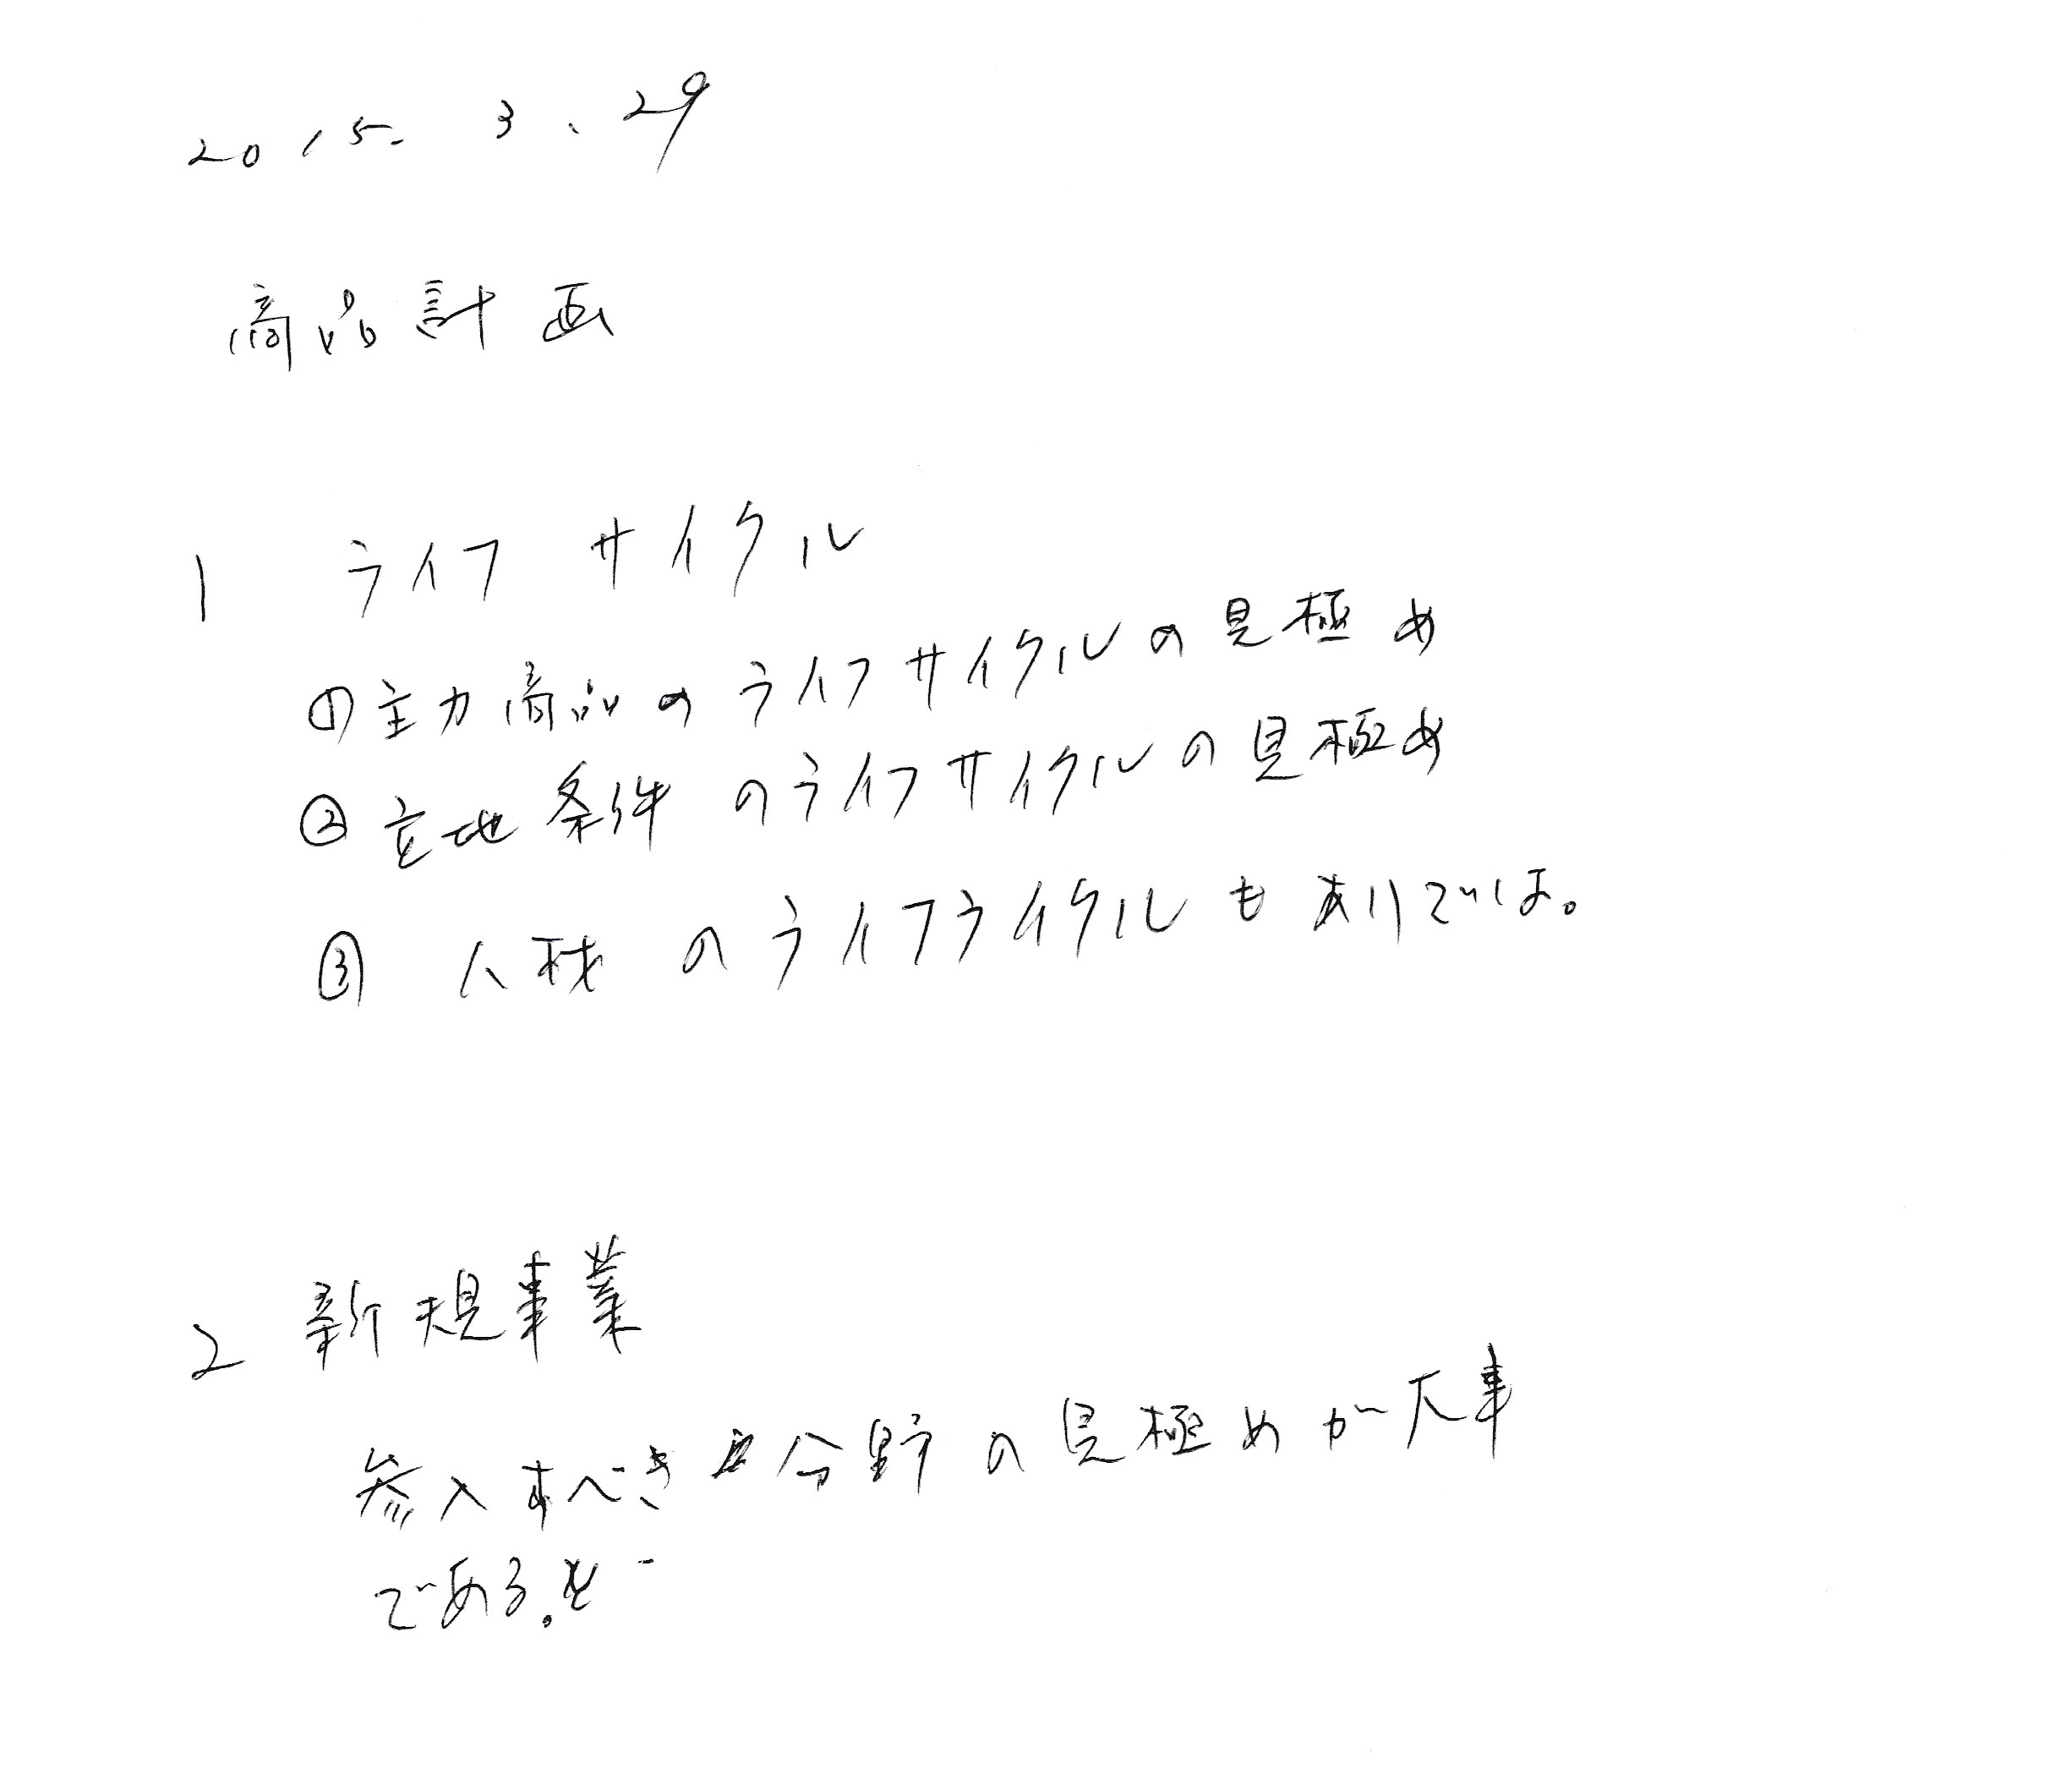 2015. 3、29
商品計画
1 ライフサイクル
①主力商品のライフサイクルの見極め
②立地条件のライフサイクルの見極め
③ 人材のライフライクルもありでは。
2 新規事業
参入すべき分野の見極めが大事
である。